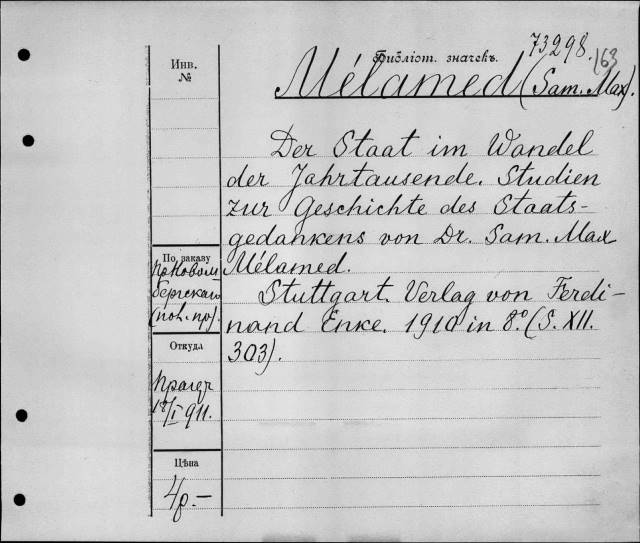 73298.
163
Инв.
№
Библіот. значекъ.
Mélamed (Sam. Max).
Der Staat im Wandel
der Jahrtausende. Studien
zur Geschichte des Staats-
gedankens von Dr. Sam. Max
Mélamed.
Stuttgart. Verlag von Ferdi-
nand Enke. 1910 in 8° (S. XII.
303).
По заказу
бергскаго
Откуда
18/I 911.
Цѣна
4р.–